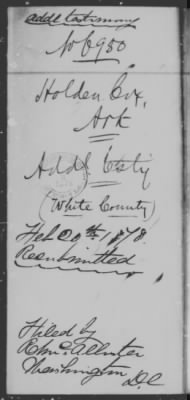 addl testimony
No 6950
Holden Cox,
Ark
Addl Testy
(White County)
Feb 20th 1878.
Resubmitted
Filed by
Washington D.C